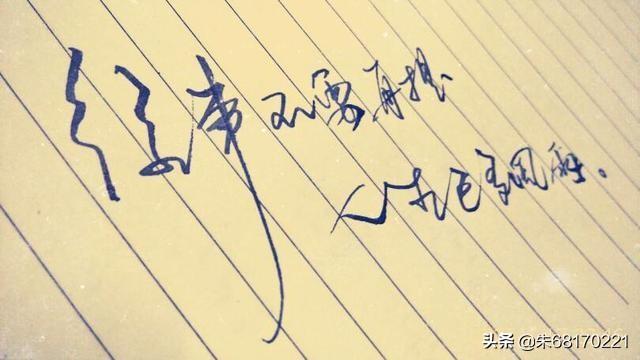 往事不要再提
人生已多风雨。
头条 @朱68170221